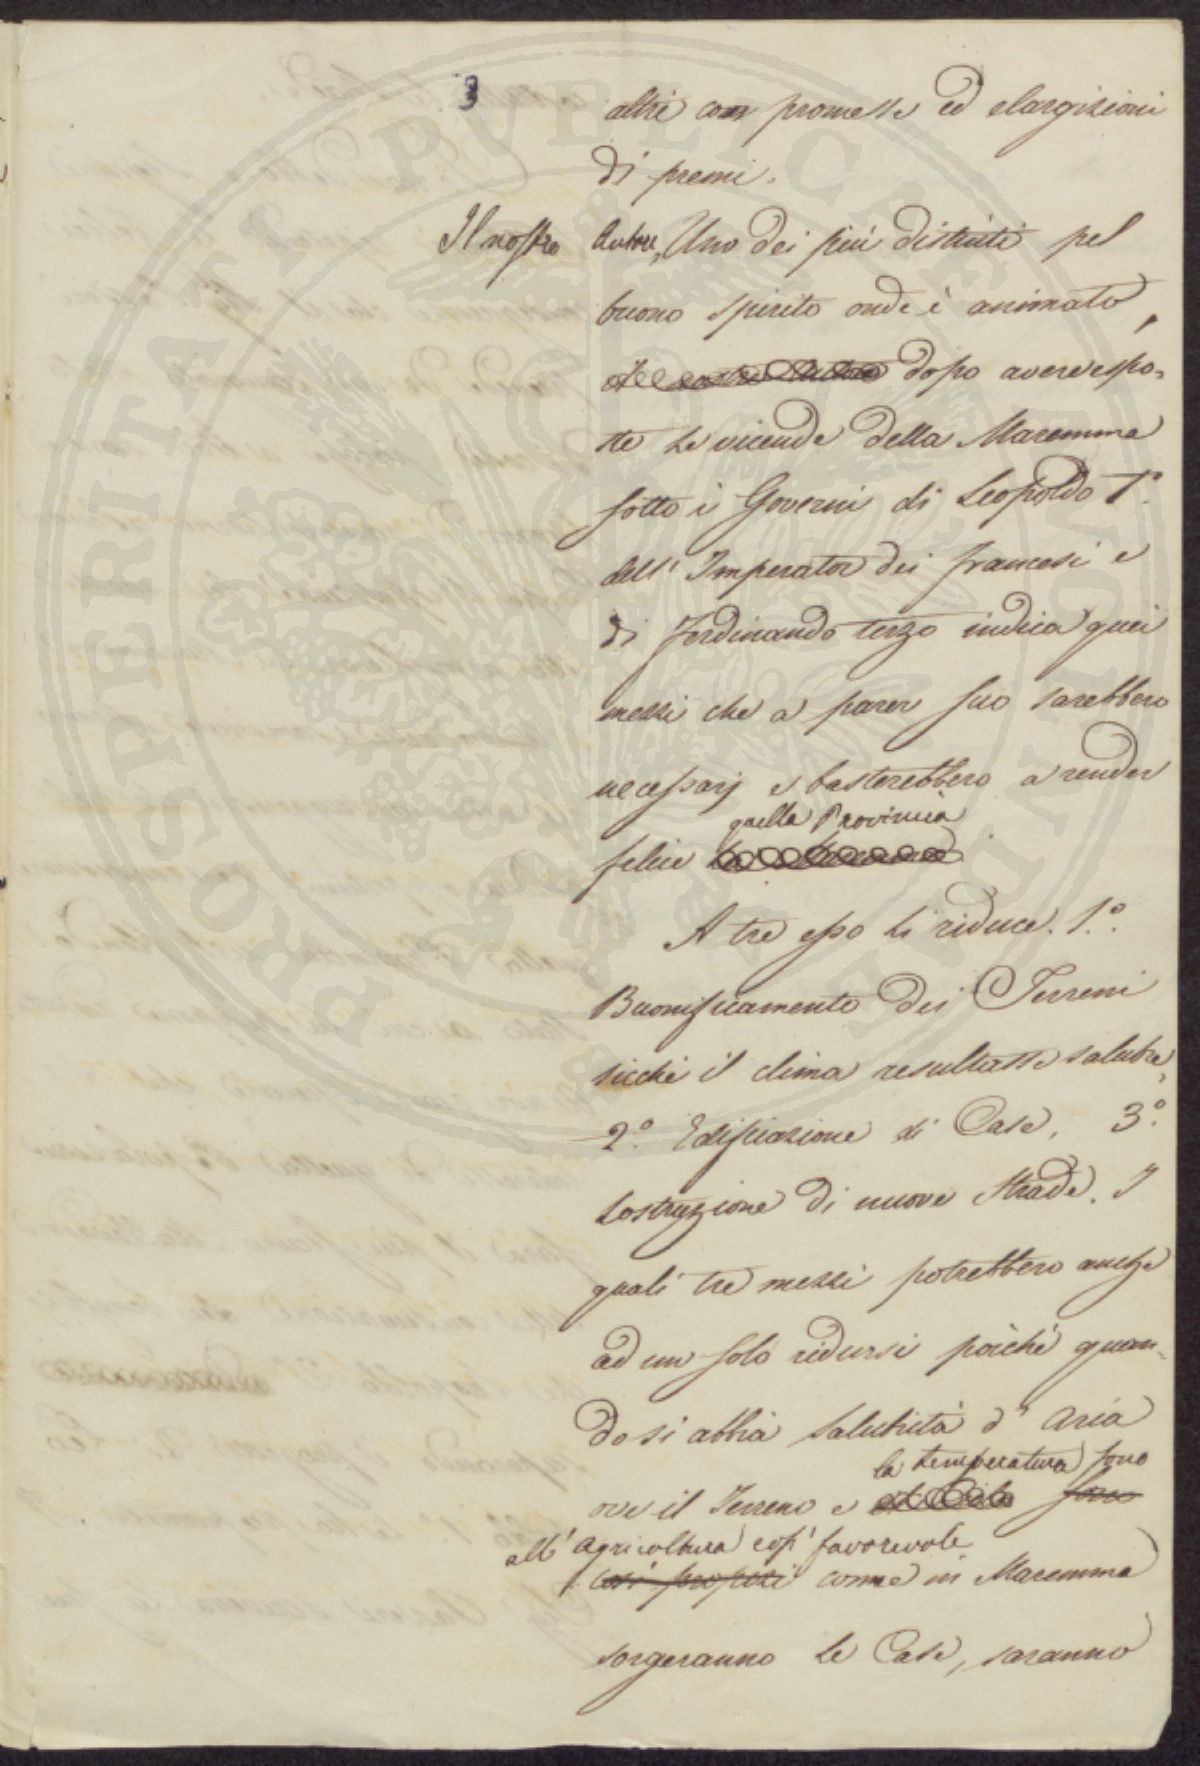 3
altri con promesse ed elargizioni
di premi.
Il nostro Autore, Uno dei più distinti pel
buono spirito onde è animato,
dopo avere espo-
ste le vicende della Maremma
sotto i Governi di Leopoldo 1°.
dell'Imperator dei francesi e
di Ferdinando terzo indica quei
mezzi che a parer suo sarebbero
necessarj e basterebbero a render
quella Provincia
felice
A tre esso li riduce. 1.°
Buonificamento dei Terreni
sicchè il clima resultasse salubre,
2.° Edificazione di Case, 3.°
Costruzione di nuove strade. I
quali tre mezzi potrebbero anche
ad un solo ridursi poichè quan-
do si abbia salubrità d'aria
la temperatura sono
ove il Terreno e sono
all'Agricoltura così favorevole
così propizi come in Maremma
sorgeranno le Case, saranno
PROSPERITATI PVBLICAE AVGENDAE